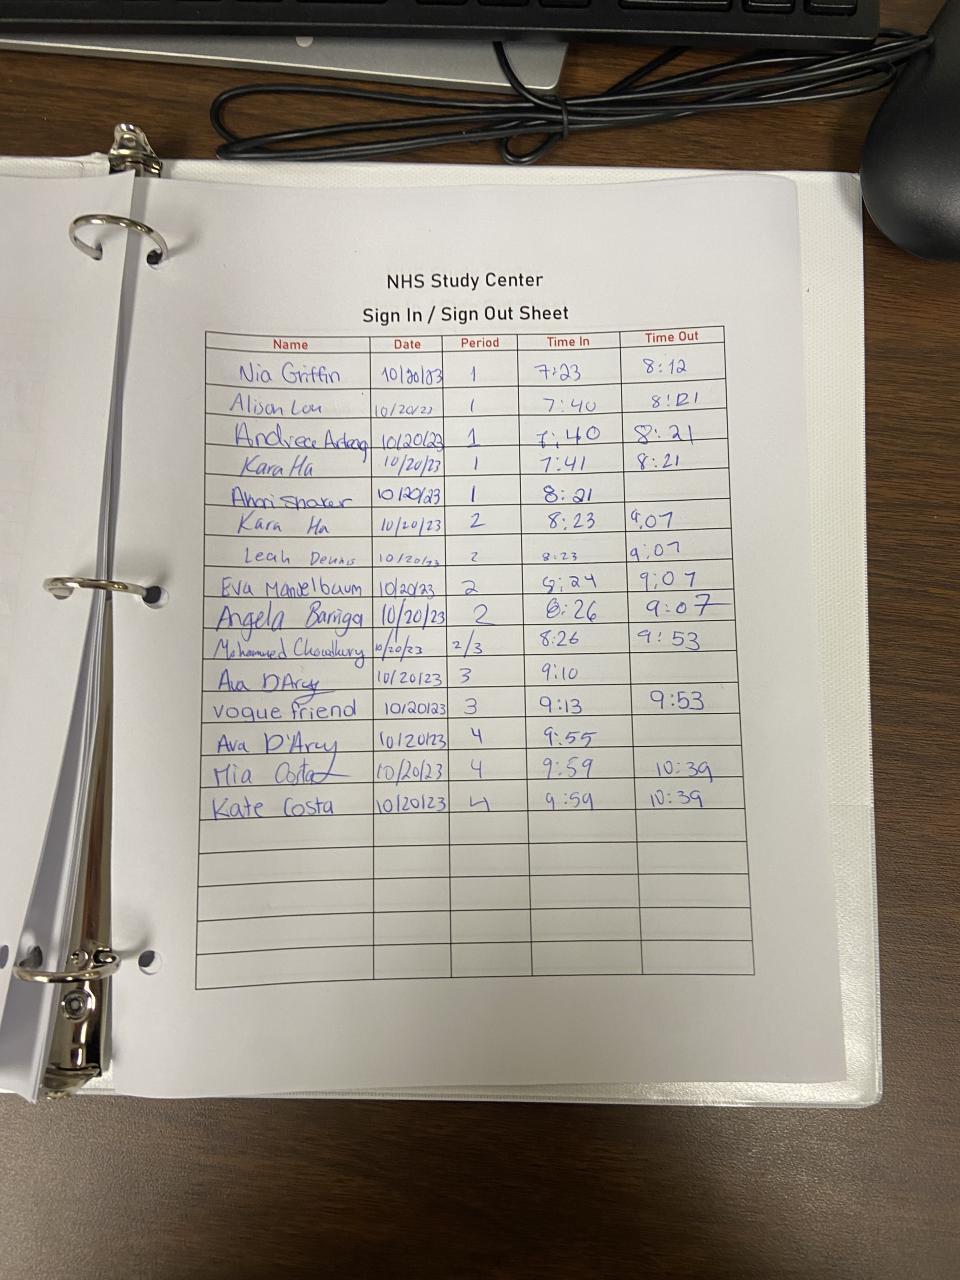 NHS Study Center
Sign In / Sign Out Sheet
Name Date Period Time In Time Out
Nia Griffin 10/20/23 1 7:23 8:12
Alison Lou 10/20/23 1 7:40 8:21
10/20/23 1 7:40 8:21
Kara Ha 10/20/23 1 7:41 8:21
10/20/23 1 8:21
Kara Ha 10/20/23 2 8:23 9:07
Leah Dennis 10/20/23 2 8:23 9:07
Eva Mandelbaum 10/20/23 2 8:24 9:07
Angela Barriga 10/20/23 2 8:26 9:07
Mohammed Chowdhury 10/20/23 2/3 8:26 9:53
Ava D'Arcy 10/20/23 3 9:10
vogue friend 10/20/23 3 9:13 9:53
Ava D'Arcy 10/20/23 4 9:55
Mia Costa 10/20/23 4 9:59 10:39
Kate Costa 10/20/23 4 9:59 10:39